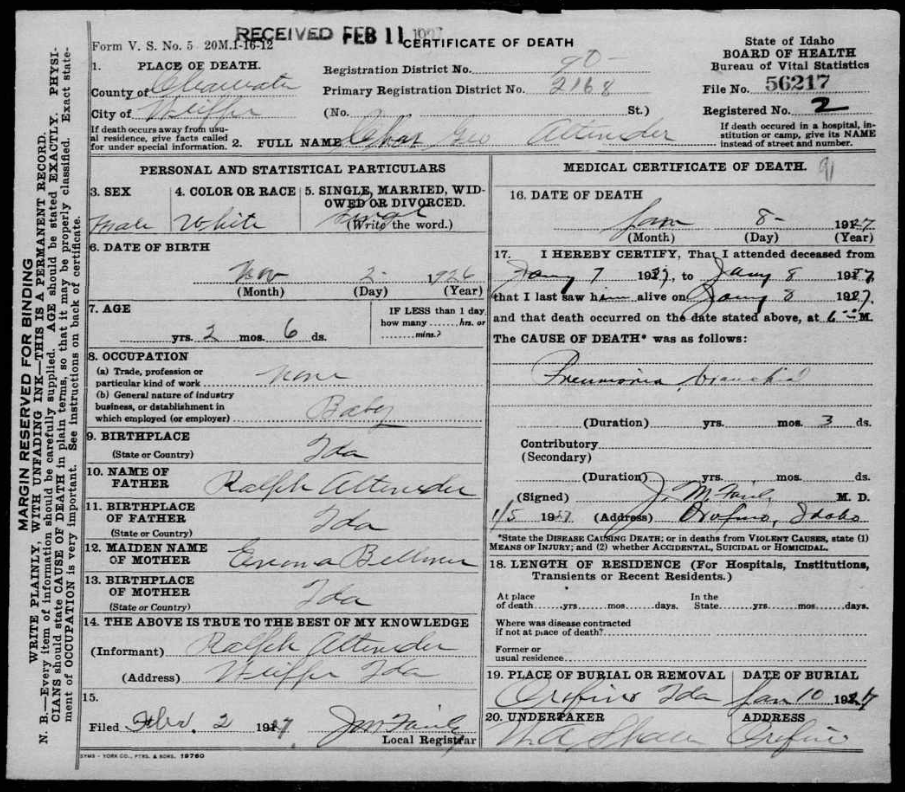 RECEIVED FEB 11 1927
Form V. S. No. 5 20M.1-16-12
CERTIFICATE OF DEATH
State of Idaho
BOARD OF HEALTH
Bureau of Vital Statistics
File No. 56217
Registered No. 2
If death occured in a hospital, institution or camp, give its NAME instead of street and number.
1. PLACE OF DEATH.
County of Clearwater
City of
Registration District No. 90
Primary Registration District No. 2168
(No. St.)
If death occurs away from usual residence, give facts called for under special information.
2. FULL NAME Chas Geo Altender
PERSONAL AND STATISTICAL PARTICULARS
3. SEX
Male
4. COLOR OR RACE
White
5. SINGLE, MARRIED, WIDOWED OR DIVORCED.
(Write the word.)
6. DATE OF BIRTH
Nov 2 1926
(Month) (Day) (Year)
7. AGE
yrs. 2 mos. 6 ds.
IF LESS than 1 day how many ...... hrs. or ...... mins.?
8. OCCUPATION
(a) Trade, profession or particular kind of work none
(b) General nature of industry business, or establishment in which employed (or employer) Baby
9. BIRTHPLACE
(State or Country) Ida
10. NAME OF FATHER Ralph Altender
11. BIRTHPLACE OF FATHER
(State or Country) Ida
12. MAIDEN NAME OF MOTHER
13. BIRTHPLACE OF MOTHER
(State or Country) Ida
14. THE ABOVE IS TRUE TO THE BEST OF MY KNOWLEDGE
(Informant) Ralph Altender
(Address) Ida
15.
Filed Feb. 2 1927
Local Registrar
SYMS - YORK CO., PTRS. & BDRS. 19760
MEDICAL CERTIFICATE OF DEATH. 91
16. DATE OF DEATH
Jan 8- 1927
(Month) (Day) (Year)
17. I HEREBY CERTIFY, That I attended deceased from
Jany 7 1927, to Jany 8 1927
that I last saw him alive on Jany 8 1927,
and that death occurred on the date stated above, at 6 M.
The CAUSE OF DEATH* was as follows:
Pneumonia, bronchial
(Duration) yrs. mos. 3 ds.
Contributory
(Secondary)
(Duration) yrs. mos. ds.
(Signed) J. M. M. D.
1/5 1927 (Address) Orofino, Idaho
*State the DISEASE CAUSING DEATH; or in deaths from VIOLENT CAUSES, state (1) MEANS OF INJURY; and (2) whether ACCIDENTAL, SUICIDAL or HOMICIDAL.
18. LENGTH OF RESIDENCE (For Hospitals, Institutions, Transients or Recent Residents.)
At place of death yrs. mos. days. In the State yrs. mos. days.
Where was disease contracted if not at place of death?
Former or usual residence
19. PLACE OF BURIAL OR REMOVAL
Orofino Ida
DATE OF BURIAL
Jan 10 1927
20. UNDERTAKER
ADDRESS
Orofino
MARGIN RESERVED FOR BINDING
WRITE PLAINLY, WITH UNFADING INK—THIS IS A PERMANENT RECORD.
N. B.—Every item of information should be carefully supplied. AGE should be stated EXACTLY. PHYSICIANS should state CAUSE OF DEATH in plain terms, so that it may be properly classified. Exact statement of OCCUPATION is very important. See instructions on back of certificate.